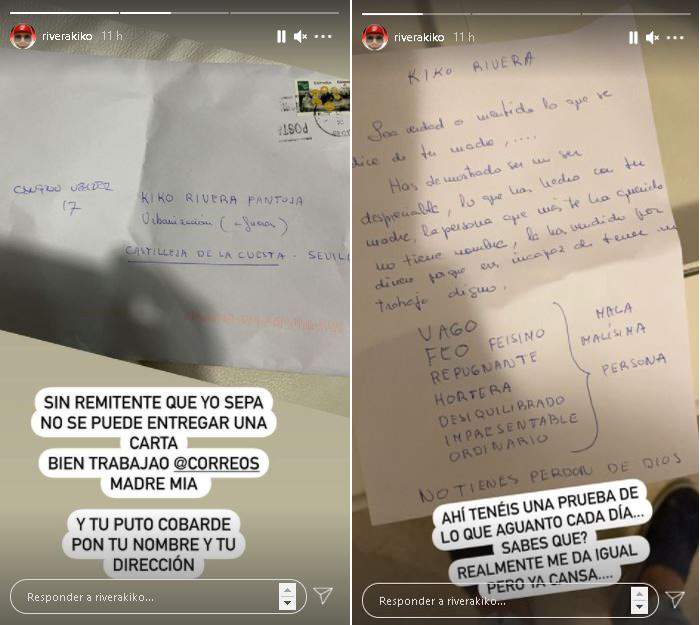 riverakiko 11 h
CASTILLEJA DE LA CUESTA - SEVILL
KIKO RIVERA PANTOJA
17
Urbanización
SIN REMITENTE QUE YO SEPA
NO SE PUEDE ENTREGAR UNA
CARTA
BIEN TRABAJAO @CORREOS
MADRE MIA
Y TU PUTO COBARDE
PON TU NOMBRE Y TU
DIRECCIÓN
Responder a riverakiko...
riverakiko 11 h
KIKO RIVERA
Sea verdad o mentira lo que se
dice de tu madre, ....
Has demostrado ser un ser
despreciable, lo que has hecho con tu
madre, la persona que más te ha querido
no tiene nombre, la has vendido por
dinero porque eres incapaz de tener un
trabajo digno.
VAGO
FEO FEISIMO
REPUGNANTE
HORTERA
DESIQUILIBRADO
IMPRESENTABLE
ORDINARIO
MALA
MALÍSIMA
PERSONA
NO TIENES PERDON DE DIOS
AHÍ TENÉIS UNA PRUEBA DE
LO QUE AGUANTO CADA DÍA...
SABES QUE?
REALMENTE ME DA IGUAL
PERO YA CANSA....
Responder a riverakiko...